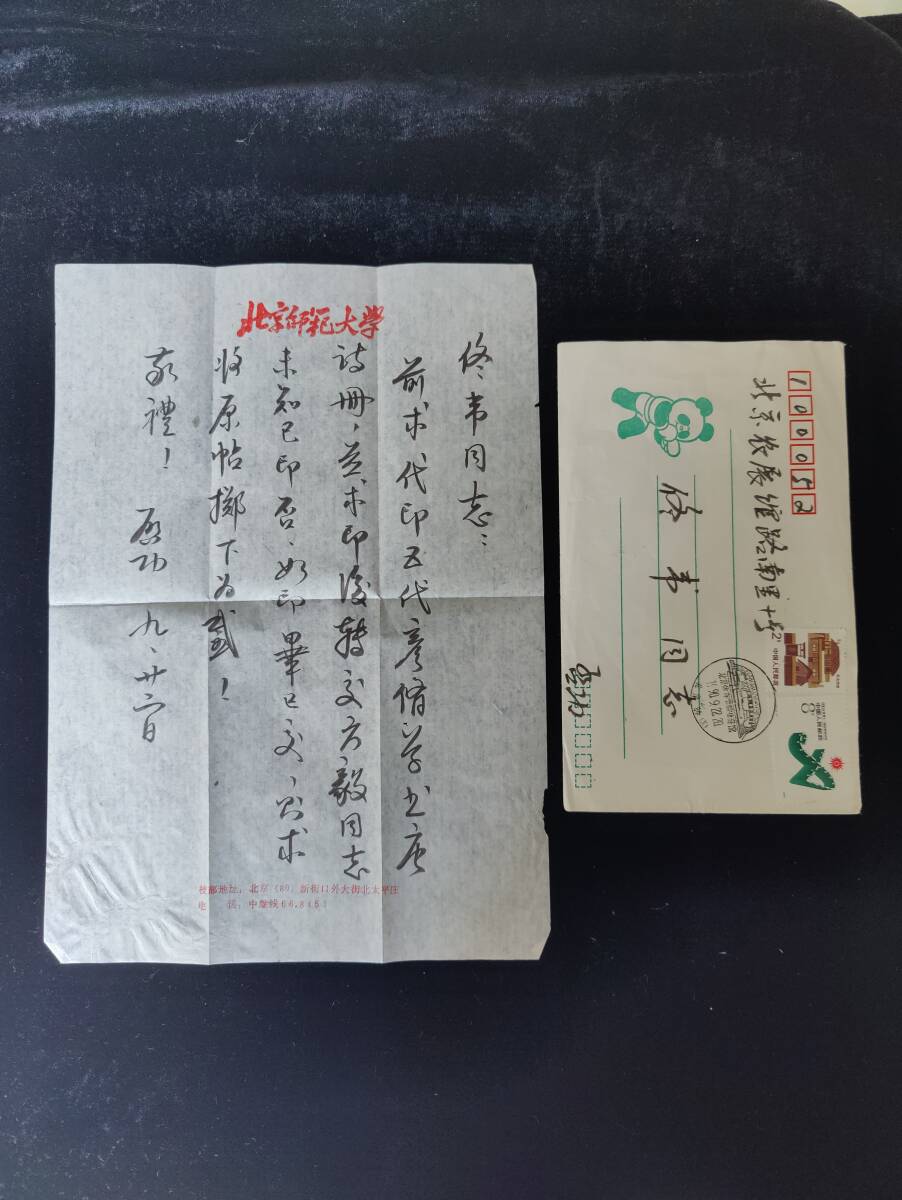 北京师范大学
佟韦同志：
前求代印五代彦脩草书唐
诗册，并求印後转交方毅同志
未知已印否、如印畢已交，则求
将原帖掷下为感！
敬禮！
启功
九、廿二日
校部地址：北京（89）新街口外大街北太平庄
电 话：中继线66.8451
100052
北京农展馆路南里十号
佟韦同志
中国人民邮政
8分
中国人民邮政